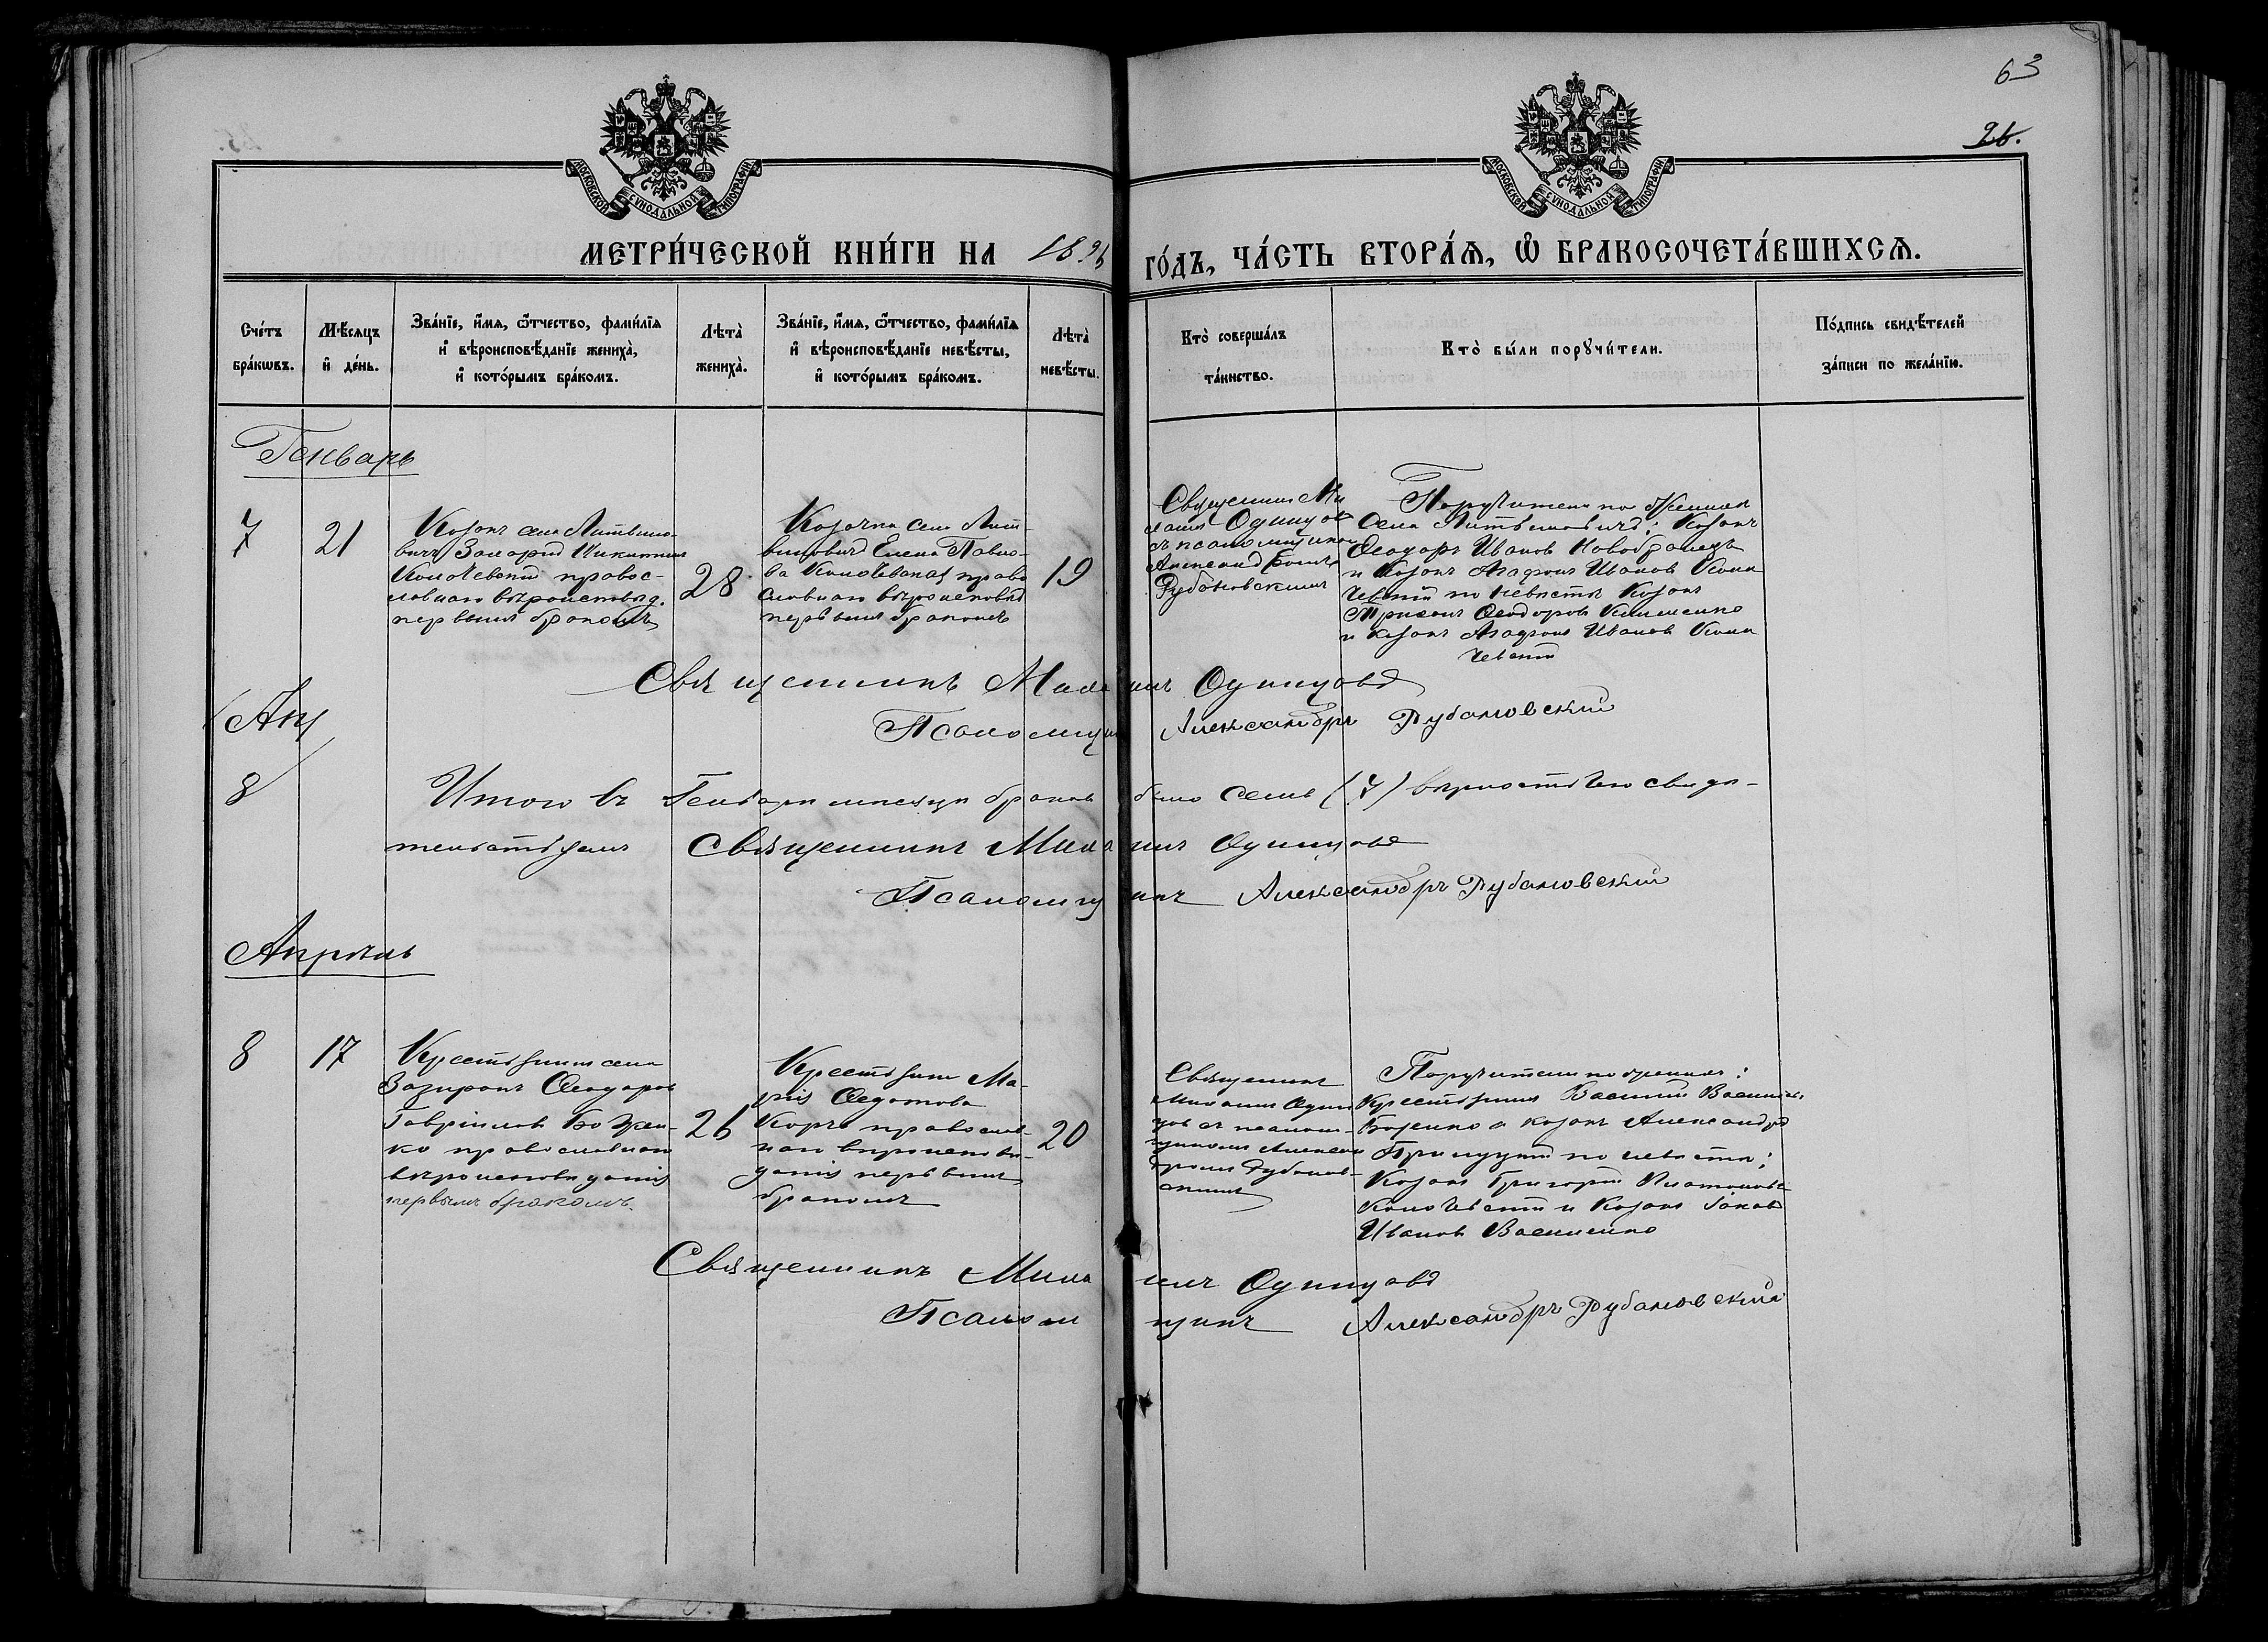 63
26.
МОСКОВСКОЙ СѴНОДАЛЬНОЙ ТИПОГРАФІИ
МОСКОВСКОЙ СѴНОДАЛЬНОЙ ТИПОГРАФІИ
МЕТРИ́ЧЕСКОЙ КНИ́ГИ НА 1896 ГО́ДЪ, ЧА́СТЬ ВТОРА́Ѧ, Ѡ҆ БРАКОСОЧЕТА́ВШИХСѦ.
Сче́тъ
бра́кѡвъ.
Мѣ́сяцъ
и҆ де́нь.
Зва́нїе, и҆́мѧ, ѻ҆́тчество, фами́лїѧ
и҆ вѣроисповѣ́данїе жениха̀,
и҆ кото́рымъ бра́комъ.
Лѣта̀
жениха̀.
Зва́нїе, и҆́мѧ, ѻ҆́тчество, фами́лїѧ
и҆ вѣроисповѣ́данїе невѣ́сты,
и҆ кото́рымъ бра́комъ.
Лѣта̀
невѣ́сты.
Кто̀ соверша́лъ
та́инство.
Кто̀ бы́ли порꙋчи́тели.
По́дпись свидѣ́телей
за́писи по жела́нїю.
Генварь
7
21
Козакъ села Литвино-
вичъ Захарій Никитинъ
Колочевскій правос-
лавнаго вѣроисповѣд.
первымъ бракомъ
28
Козачка села Лит-
виновичъ Елена Павло-
ва Колочевская право
славнаго вѣроисповѣд
первымъ бракомъ
19
Священникъ Ми
лапъ Одинцовъ
съ псаломщикомъ
Александромъ
Рубановскимъ
Поручители по женихѣ
Села Литвиновичъ: Козакъ
Ѳеодоръ Ивановъ Новобранецъ
и Козакъ Агафонъ Ивановъ Коло
чевскій по невѣстѣ Козакъ
Трифонъ Ѳеодоровъ Клименко
и козакъ Агафонъ Ивановъ Коло
чевскій
Священникъ Одинцовъ
Псаломщикъ Александръ Рубановскій
Апр
8
Итого въ Генварѣ мѣсяцѣ браковъ было семь (7) вѣрность чего свидѣ-
тельствуемъ Священникъ Одинцовъ
Псаломщикъ Александръ Рубановскій
Апрѣль
8
17
Крестьянинъ села
Ѳеодоръ
Гавріиловъ Божен-
ко православнаго
вѣроисповѣданія
первымъ бракомъ.
26
Крестьянка Ма-
рія Ѳедотова
Корчъ православ-
наго вѣроисповѣ-
данія первымъ
бракомъ
20
Священникъ
Один
цовъ съ псалом-
щикомъ Алексан
дромъ Рубанов-
скимъ
Поручители по женихѣ:
Крестьянинъ Василій Васильевъ
Боженко и козакъ Александръ
по невѣстѣ:
Козакъ Григорій Платоновъ
Колочевскій и Козакъ Іаковъ
Ивановъ Василенко
Священникъ Одинцовъ
Псаломщикъ Александръ Рубановскій